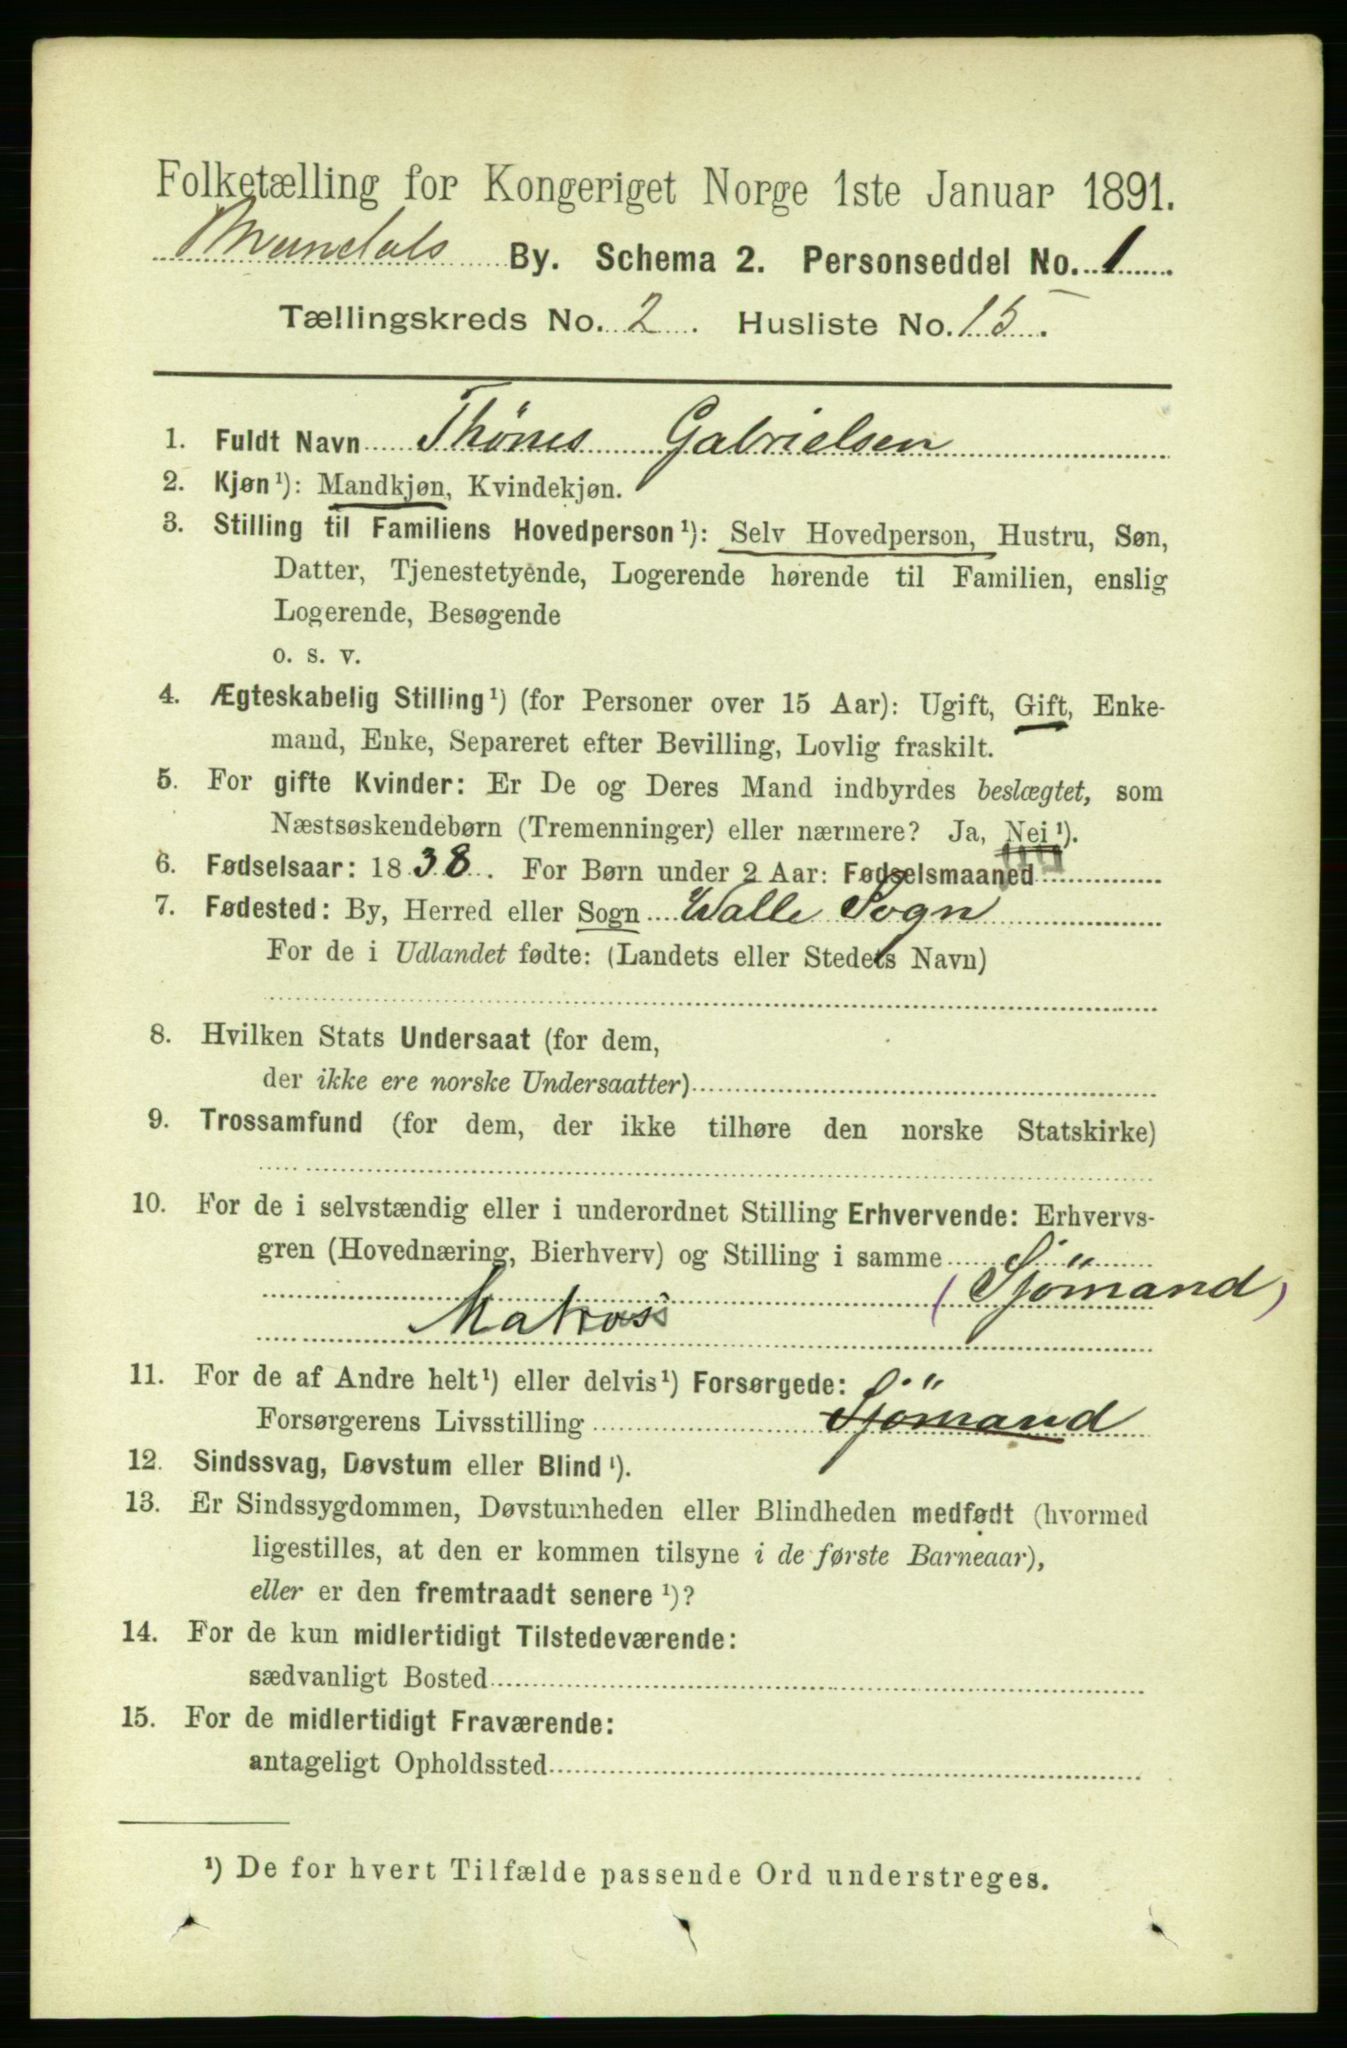 Folketælling for Kongeriget Norge 1ste Januar 1891.
Mandals By. Schema 2. Personseddel No. 1
Tællingskreds No. 2. Husliste No. 15.
1. Fuldt Navn Thönes Gabrielsen
2. Kjøn¹): Mandkjøn, Kvindekjøn.
3. Stilling til Familiens Hovedperson¹): Selv Hovedperson, Hustru, Søn,
Datter, Tjenestetyende, Logerende hørende til Familien, enslig
Logerende, Besøgende
o. s. v.
4. Ægteskabelig Stilling¹) (for Personer over 15 Aar): Ugift, Gift, Enke-
mand, Enke, Separeret efter Bevilling, Lovlig fraskilt.
5. For gifte Kvinder: Er De og Deres Mand indbyrdes beslægtet, som
Næstsøskendebørn (Tremenninger) eller nærmere? Ja, Nei¹).
6. Fødselsaar: 1838. For Børn under 2 Aar: Fødselsmaaned
7. Fødested: By, Herred eller Sogn Walle Sogn
For de i Udlandet fødte: (Landets eller Stedets Navn)
8. Hvilken Stats Undersaat (for dem,
der ikke ere norske Undersaatter)
9. Trossamfund (for dem, der ikke tilhøre den norske Statskirke)
10. For de i selvstændig eller i underordnet Stilling Erhvervende: Erhvervs-
gren (Hovednæring, Bierhverv) og Stilling i samme
(Sjömand)
Matros
11. For de af Andre helt¹) eller delvis¹) Forsørgede:
Forsørgerens Livsstilling Sjömand
12. Sindssvag, Døvstum eller Blind¹).
13. Er Sindssygdommen, Døvstumheden eller Blindheden medfødt (hvormed
ligestilles, at den er kommen tilsyne i de første Barneaar),
eller er den fremtraadt senere¹)?
14. For de kun midlertidigt Tilstedeværende:
sædvanligt Bosted
15. For de midlertidigt Fraværende:
antageligt Opholdssted
¹) De for hvert Tilfælde passende Ord understreges.